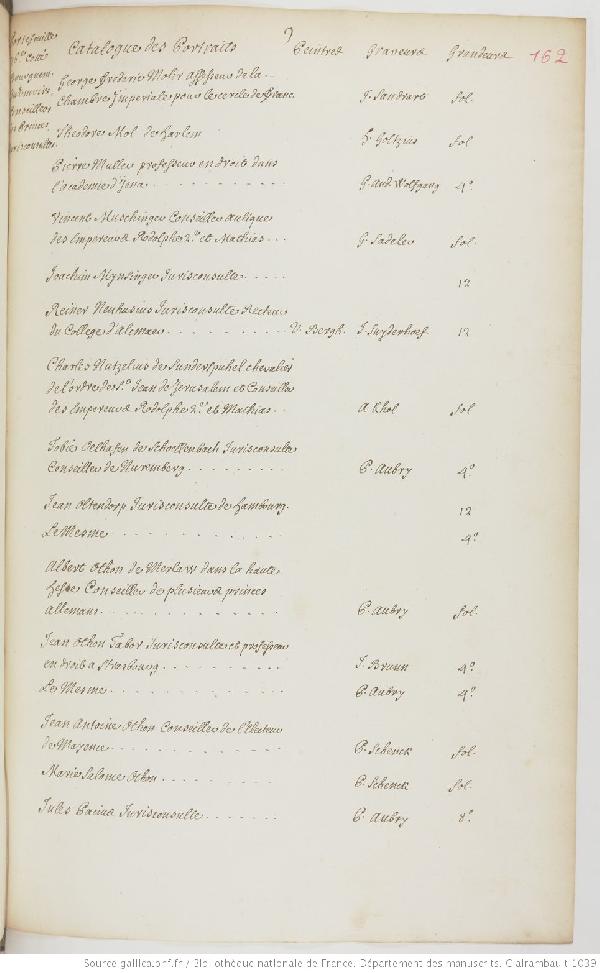 Catalogue des Portraits Peintres Graveurs Grandeurs 162
George Frideric Mohr assesseur de la
Chambre Imperiale pour le cercle de Franc. J. Sandrart fol.
Theodore Mol de harlem H. Goltzius fol
Pierre Muller professeur en droit dans
l'academie d'Jena G. And. Wolfgang 4°.
Vincent Muschinger Conseiller aulique
des Empereurs Rodolphe 2.d et Mathias G. Sadeler fol.
Joachim Mynsinger Jurisconsulte 12
Reiner Neuhusius Jurisconsulte Recteur
du College d'Alcmaer V. Bergh. J. Suyderhoef 12
Charles Nutzelius de Sunderspuhel chevalier
de l'ordre de St. Jean de Jerusalem et Conseiller
des Empereurs Rodolphe 2.d et Mathias A Khol fol
Tobie Oelhafen de Schoellenbach Jurisconsulte
Conseiller de Nuremberg P. Aubry 4°.
Jean Oltendorp Jurisconsulte de hambourg. 12
Le Mesme 4°.
Albert Othon de Merlaw dans la haute
hesse Conseiller de plusieurs princes
allemans P. Aubry fol.
Jean Othon Tabor Jurisconsulte et professeur
en droit a Strasbourg J. Brunn 4°.
Le Mesme P. Aubry 4°.
Jean Antoine Othon Conseiller de l'Electeur
de Mayence P. Schenck fol.
Marie Salome Othon P. Schenck fol.
Jules Pacius Jurisconsulte P. Aubry 8°.
Source gallica.bnf.fr / Bibliothèque nationale de France. Département des manuscrits. Clairambault 1039